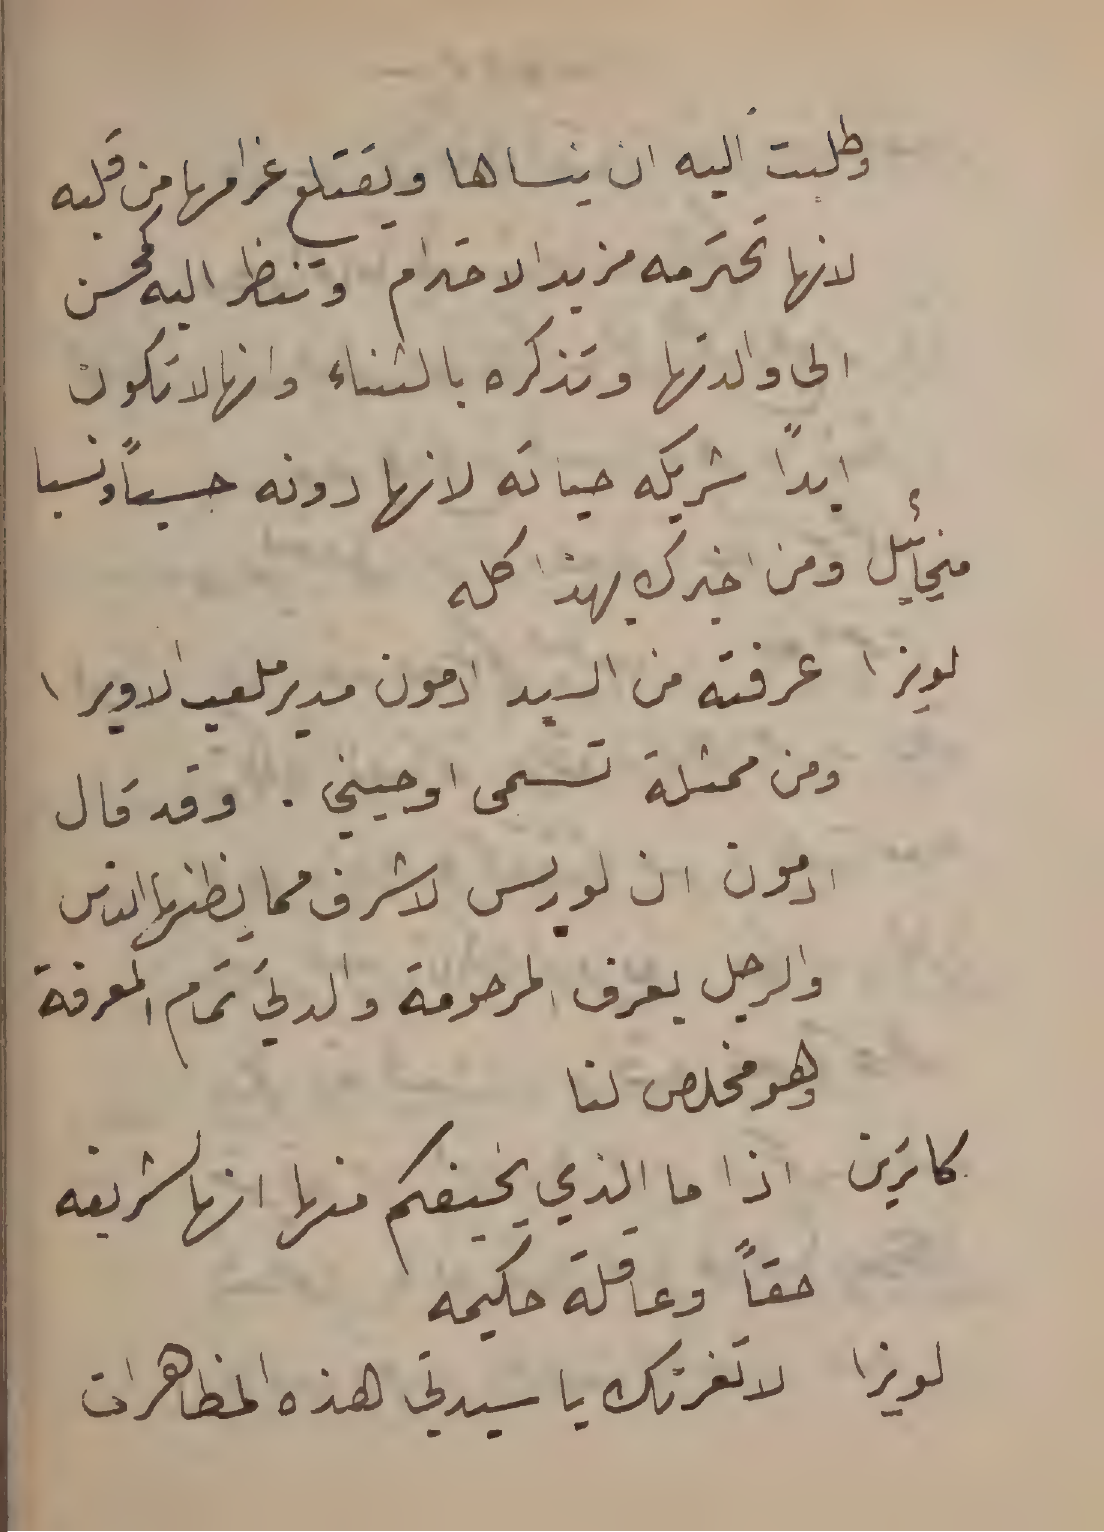 وطلبت اليه ان ينساها ويقتلع غرامها من قلبه
لانها تحترمه مزيد الاحترام وتنظر اليه كمحسن
الى والدتها وتذكره بالثناء وانها لا تكون
ابداً شريكه حياته لانها دونه حسباً ونسبا
ميخائيل ومن اخبرك بهذا كله
لويزا عرفته من السيد ادمون مدير ملعب الاوبرا
ومن ممثلة تسمى اوجيني . وقد قال
ادمون ان لوريس لاشرف مما يظنها الناس
والرجل يعرف المرحومة والدتي تمام المعرفة
وهو مخلص لنا
كاترين اذا ما الذي يخيفكم منها انها لشريفه
حقاً وعاقلة حكيمه
لويزا لا تغرنك يا سيدتي هذه المظاهرات